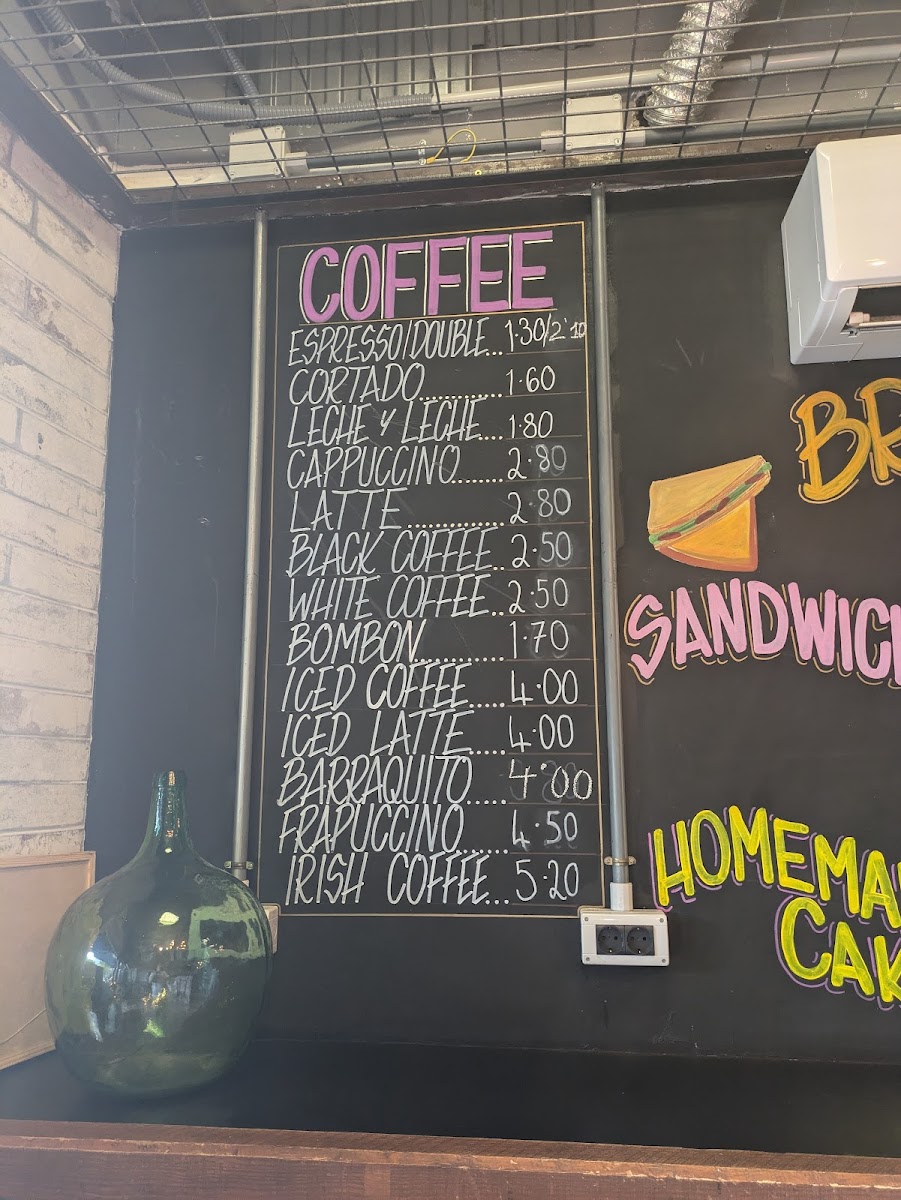 COFFEE
ESPRESSO/DOUBLE...1·30/2'10
CORTADO..........1·60
LECHE Y LECHE...1·80
CAPPUCCINO......2·80
LATTE............2·80
BLACK COFFEE..2·50
WHITE COFFEE..2·50
BOMBON...........1·70
ICED COFFEE.....4·00
ICED LATTE.....4·00
BARRAQUITO.....4'00
FRAPUCCINO......4·50
IRISH COFFEE...5·20
BR
SANDWIC
HOMEMA
CAK